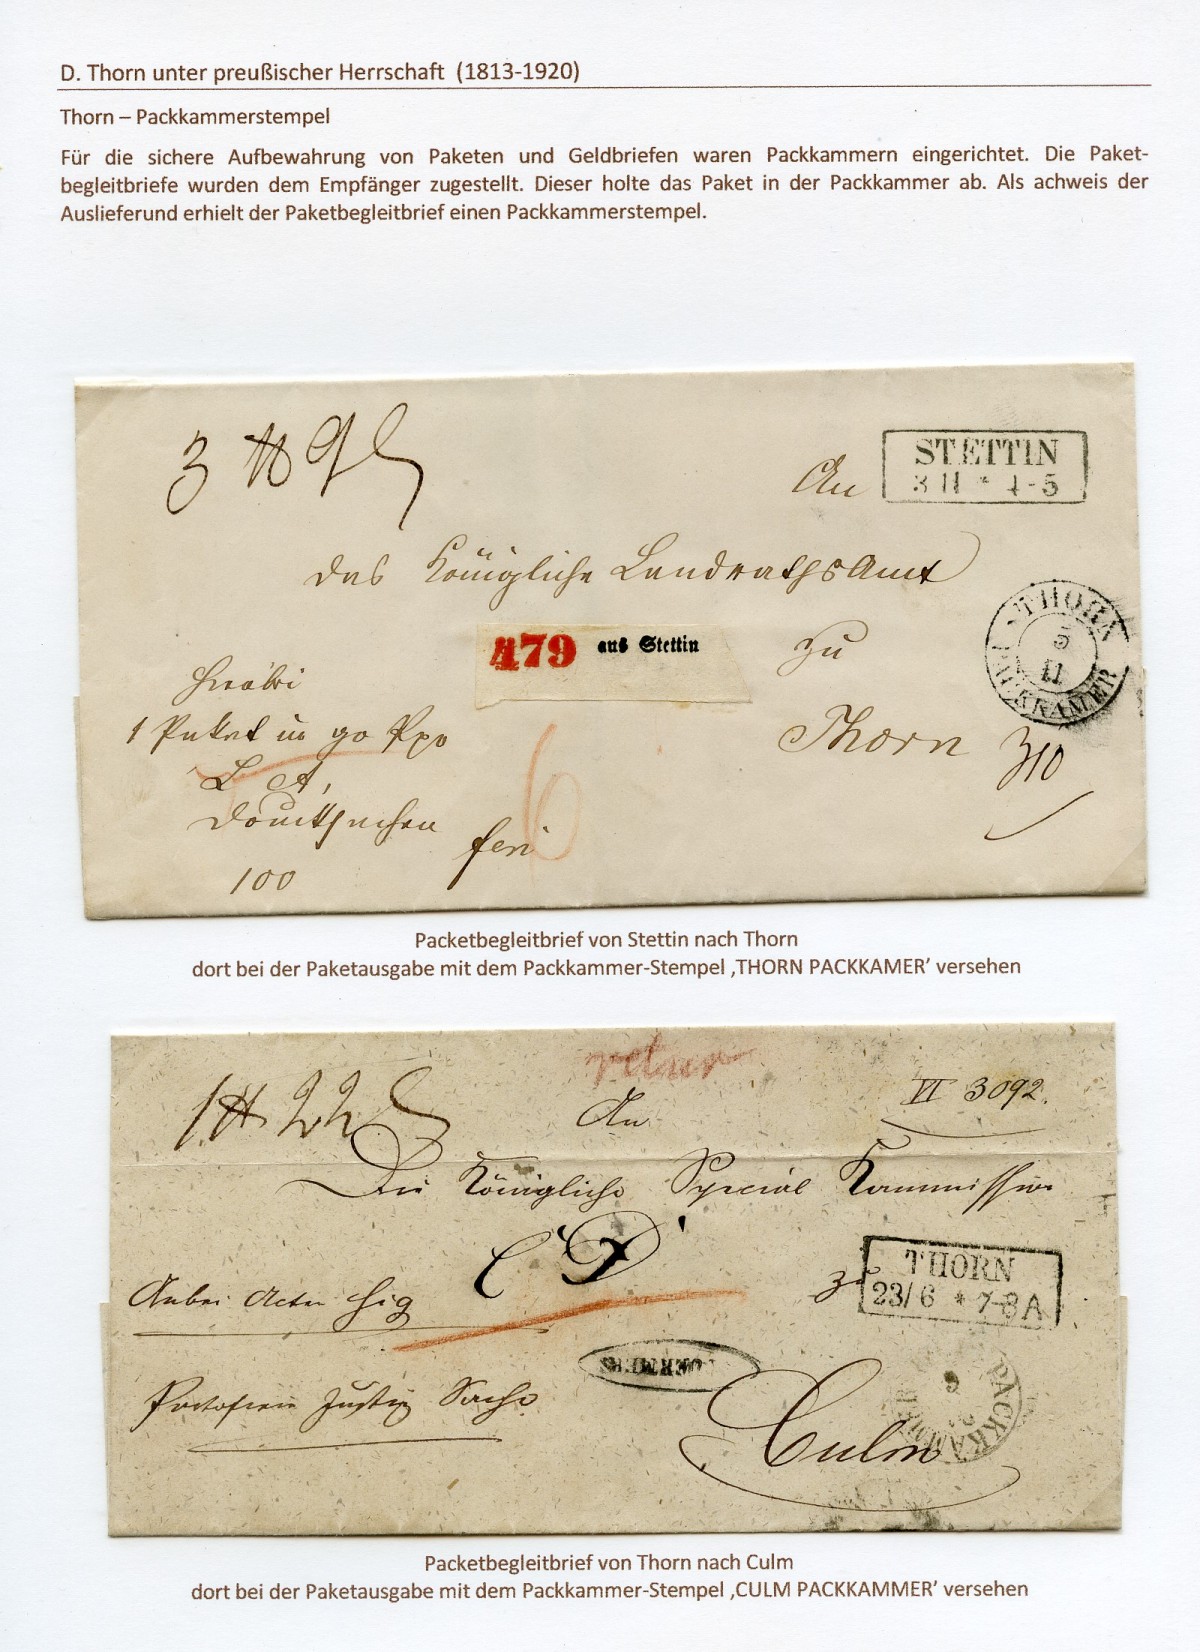 D. Thorn unter preußischer Herrschaft (1813-1920)
Thorn – Packkammerstempel
Für die sichere Aufbewahrung von Paketen und Geldbriefen waren Packkammern eingerichtet. Die Paket-
begleitbriefe wurden dem Empfänger zugestellt. Dieser holte das Paket in der Packkammer ab. Als achweis der
Auslieferund erhielt der Paketbegleitbrief einen Packkammerstempel.
An
STETTIN
3 11 * 4-5
das Königliche LandrathsAmt
THORN
5
11
PACKKAMER
479 aus Stettin
zu
Thorn
310
1 Paket in
6
100
Packetbegleitbrief von Stettin nach Thorn
dort bei der Paketausgabe mit dem Packkammer-Stempel ‚THORN PACKKAMER' versehen
retour
VI 3092.
An
Die Königliche Special Kommission
zu
THORN
23/6 * 7-8 A
Anbei Acten
Portofreie Justiz Sache
PACKKAMMER
Culm
Packetbegleitbrief von Thorn nach Culm
dort bei der Paketausgabe mit dem Packkammer-Stempel ‚CULM PACKKAMMER' versehen